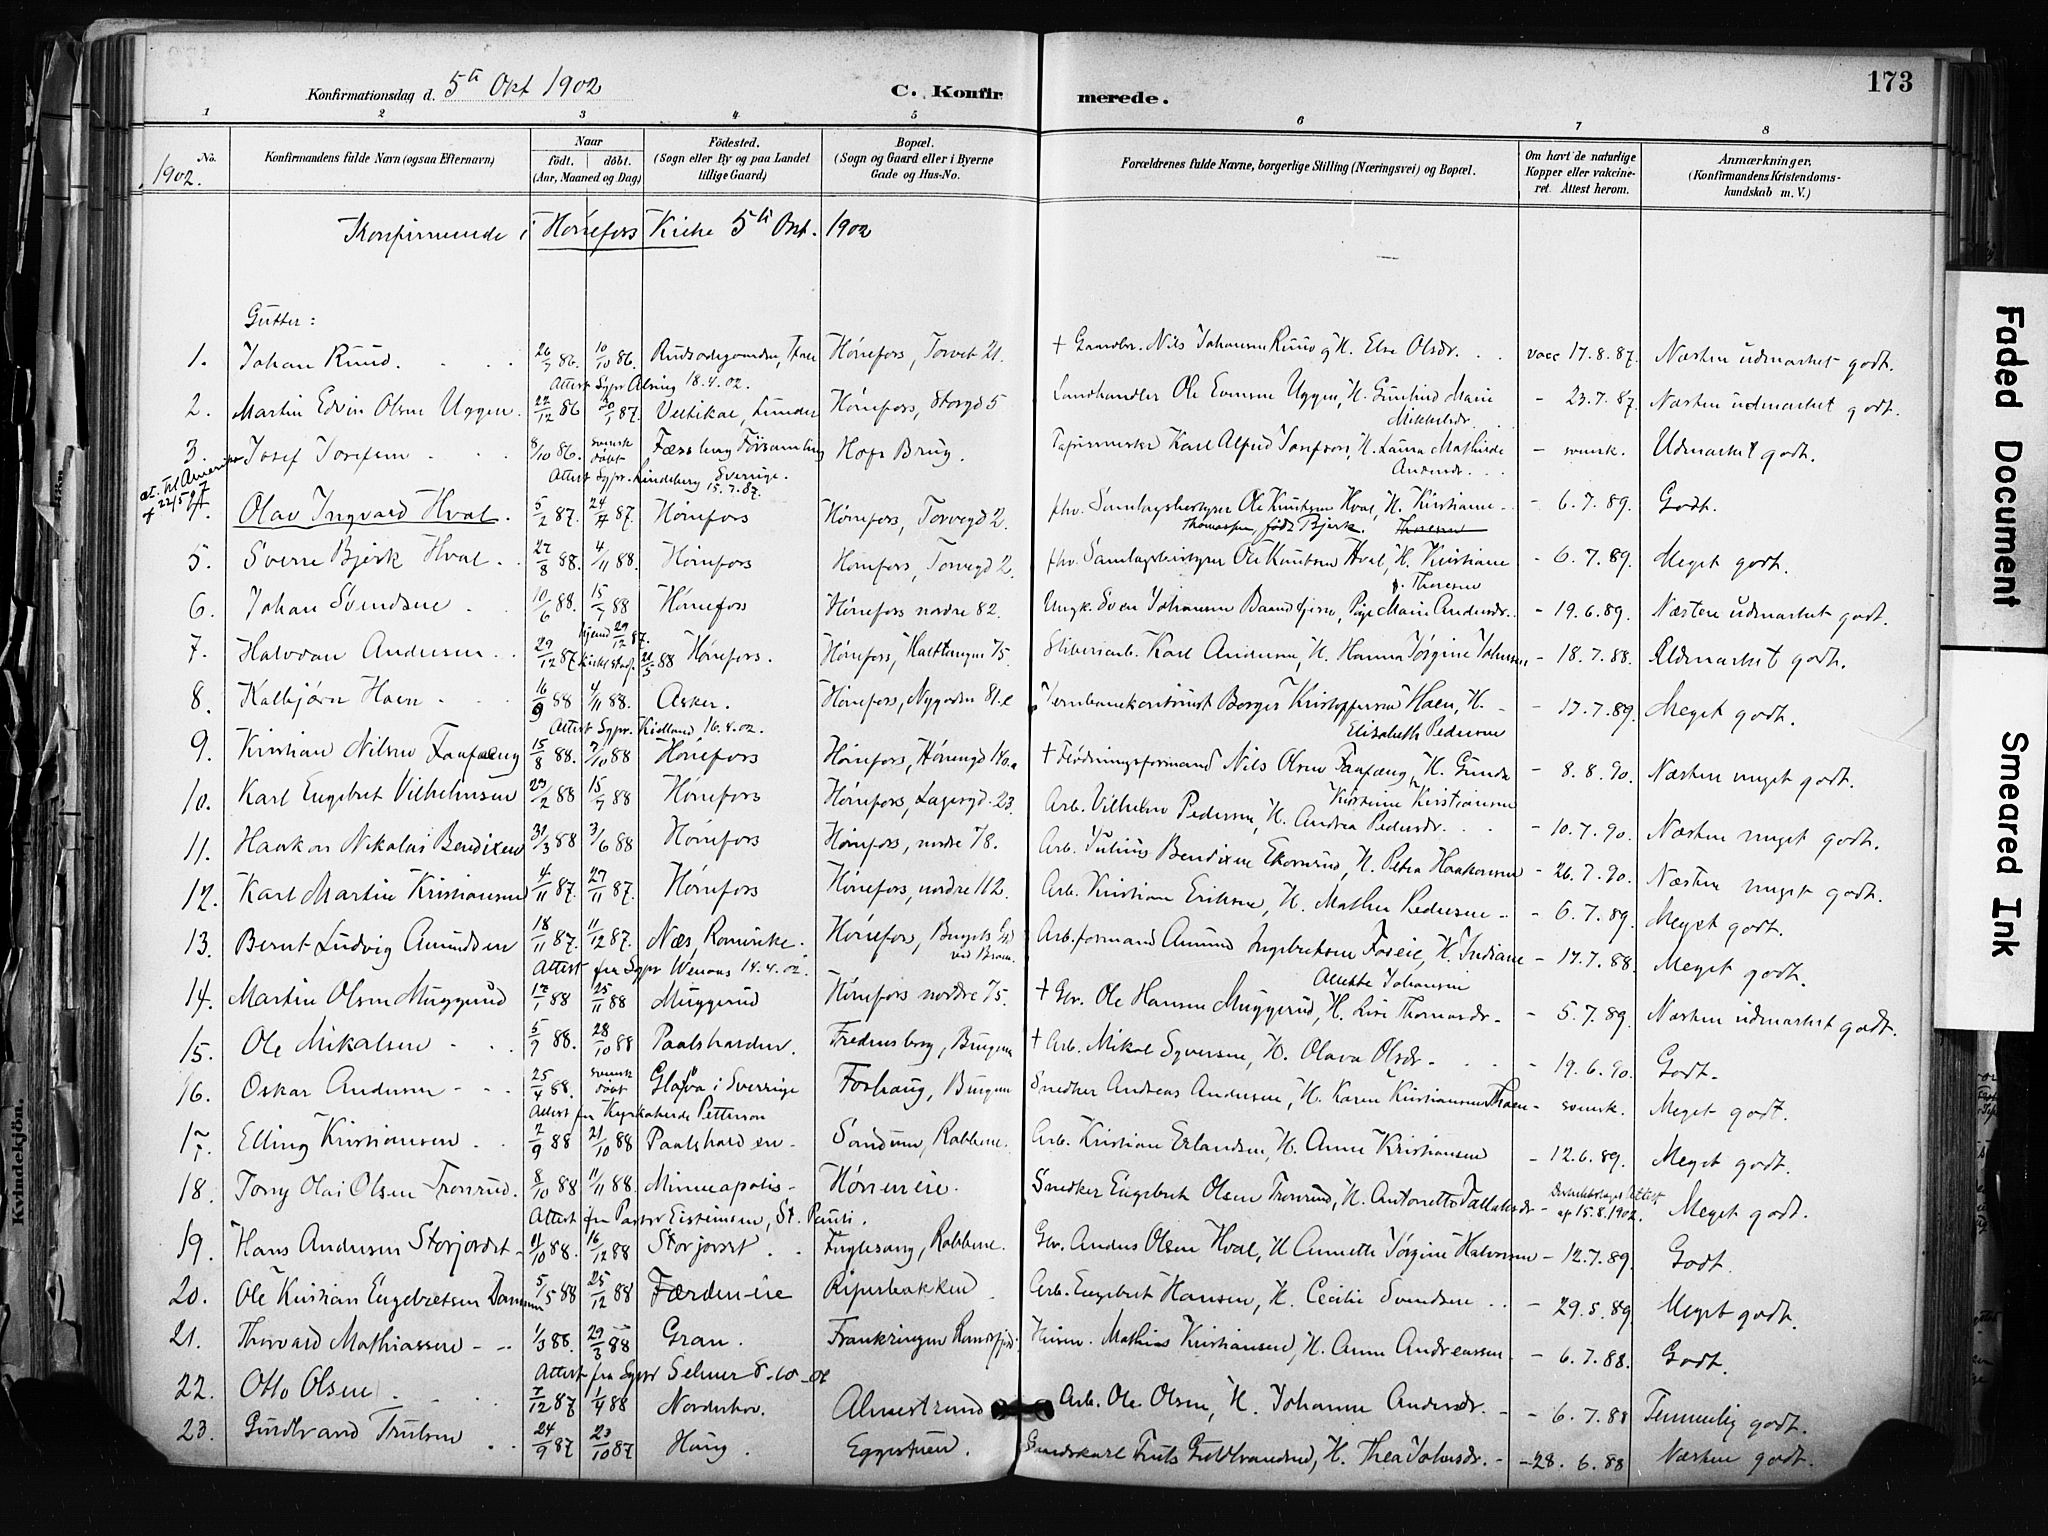 173
Konfirmationsdag d. 5te Okt 1902
C. Konfirmerede.
1 2 3 4 5 6 7 8
No. Konfirmandens fulde Navn (ogsaa Efternavn) Naar født. døbt. (Aar, Maaned og Dag) Fødested. (Sogn eller By og paa Landet tillige Gaard) Bopæl. (Sogn og Gaard eller i Byerne Gade og Hus-No. Forældrenes fulde Navne, borgerlige Stilling (Næringsvei) og Bopæl. Om havt de naturlige Kopper eller vakcineret. Attest herom. Anmærkninger. (Konfirmandens Kristendomskundskab m. V.)
1902.
Konfirmerede i Hønefos Kirke 5te Okt. 1902
Gutter:
1. Johan Ruud. 26/9 86. 10/10 86. Hønefos, Torvet 21. + Gaardbr. Nils Johansen Ruud og H. Else Olsdr. vacc 17.8.87. Næsten udmærket godt.
Attest Sgpr Alsing 18.4.02.
2. Martin Edvin Olsen Uggen. 22/12 86 30/1 87. Veltikal, Lunder Hønefos, Storgd 5 Landhandler Ole Evensen Uggen, H. Gunhild Marie Mikkelsdr. - 23.7.87. Næsten udmærket godt.
3. Josef Josefsen 8/10 86. svensk døbt Færsberg Forsamling Hofs Brug. Karl Alfred Josefson, H. Laura Mathilde Andersdr. - svensk. Udmærket godt.
Attest Sgpr. Lindeberg Sverrige. 15.7.87.
at. til Amerika 22/5 97
4. Olav Ingvard Hval. 5/2 87. 24/4 87. Hønefos Hønefos, Torvegd 2. fhv. Samlagsbestyrer Ole Knutsen Hval, H. Kirstiane Thomassen, født Bjerk. Thoresen - 6.7.89. Godt.
5. Sverre Bjerk Hval. 27/8 88. 4/11 88. Hønefos Hønefos, Torvegd 2. fhv. Samlagsbestyrer Ole Knutsen Hval, H. Kirstiane f. Thoresen - 6.7.89. Meget godt.
6. Johan Svendsen 10/6 88. 15/7 88 Hønefos Hønefos nordre 82. Ungk. Sven Johansen Baandgjern, Pige Marie Andersdr. - 19.6.89. Næsten udmærket godt.
7. Halvdan Andersen 29/12 87 hjemd 29/12 87. kirkestadf. 21/5 88 Hønefos. Hønefos, 75. Sliberiarb. Karl Andersen, H. Hanna Jørgine Johnsen - 18.7.88. Udmærket godt.
8. Kalbjørn Hoen 16/9 88 4/11 88. Asker. Hønefos, Nygaden 81.e Jernbanekontorist Borger Kristoffersen Hoen, H. Elisabeth Pedersen - 17.7.89. Meget godt.
Attest Sgpr. Kielland 16.4.02.
9. Kristian Nilsen Faafæng 15/8 88. 7/10 88 Hønefos Hønefos, Hønengd 140.a + Flødningsformand Nils Olsen Faafæng, H. Gunda Kirstine Kristiansen - 8.8.90. Næsten meget godt.
10. Karl Engebret Vilhelmsen 23/2 88 15/7 88 Hønefos Hønefos, Lagesgd. 23. Arb. Vilhelm Pedersen, H. Andrea Pedersdr. - 10.7.90. Næsten meget godt.
11. Haakon Nikolai Bendixen 31/3 88 3/6 88 Hønefos Hønefos, nordre 78. Arb. Julius Bendixen Ekornrud, H. Petra Haakonsen - 26.7.90. Næsten meget godt.
12. Karl Martin Kristiansen 4/11 87. 27/11 87. Hønefos Hønefos, nordre 112. Arb. Kristian Eriksen, H. Mathea Pedersen - 6.7.89. Meget godt.
13. Bernt Ludvig Amundsen 18/11 87. 11/12 87. Næs, Romerike. Hønefos, Brugets Gd ved Broen. Arb.formand Amund Ingebretsen Foseie, H. Indiane Anette Johansen - 17.7.88. Meget godt.
Attest fra Sgpr Wenaas 14.4.02.
14. Martin Olsen Muggerud 17/1 88 25/11 88 Muggerud Hønefos nordre 75. + Gbr. Ole Hansen Muggerud, H. Lise Thomasdr. - 5.7.89. Næsten udmærket godt.
15. Ole Mikalsen 5/9 88. 28/10 88 Paalsharden. Fredensborg, Brugene + Arb. Mikal Syversen, H. Olava Olsdr. - 19.6.90. Godt.
16. Oskar Andersen 25/4 88. svensk døbt Glafva i Sverrige Foshaug, Brugene Snedker Andreas Andersen, H. Karen Kristiansen Thoen - svensk. Meget godt.
Attest fra Kyrkoherde Petterson
17. Elling Kristiansen 2/9 88 21/10 88 Paalsharden Sandum, Rabbene. Arb. Kristian Erlandsen, H. Anne Kristiansen - 12.6.89. Meget godt.
18. Tony Olai Olsen Tronrud. 8/10 88 11/11 88. Minneapolis Hønen eie. Snedker Engebret Olsen Tronrud, H. Antonette Tollefsdr - Distriktslæge Attest af 15.8.1902. Meget godt.
Attest fra Pastor Eisteinsen, St. Pauli.
19. Hans Andersen Storjordet 11/10 88. 16/12 88 Storjordet Fuglesang, Rabbene. Gbr. Anders Olsen Hval, H. Annette Jørgine Halvorsen - 12.7.89. Godt.
20. Ole Kristian Engebretsen 5/5 88 25/12 88 Færden-eie Ripersbakken Arb. Engebret Hansen, H. Cecilie Svendsen - 29.5.89. Meget godt.
21. Thorvald Mathiassen 1/3 88. 29/3 88 Gran. Frankringen Randsfjord. Mathias Kristiansen, H. Anne Andreassen - 6.7.88. Godt.
Attest fra Sgpr Selmer 8-10-02
22. Otto Olsen 7/12 87 1/4 88 Norderhov. Almestrand Arb. Ole Olsen, H. Johanne Andersdr. - 6.7.88 Temmelig godt.
23. Guldbrand Trulsen 24/9 87 23/10 87 Haug. Eggestuen. Gaardskarl Truls Guldbrandsen, H. Thea Johnsdr. - 28.6.88 Næsten godt.
Kvindekjøn.
Faded Document
Smeared Ink